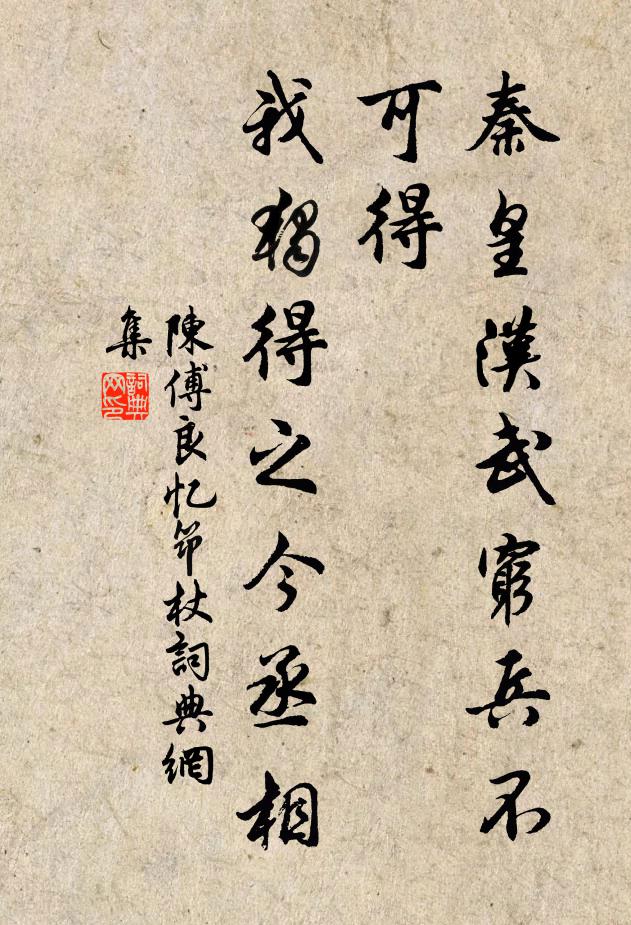 秦皇漢武窮兵不
可得
我獨得之今丞相
陳傅良忆筇杖詞典網
集
詞典
网印